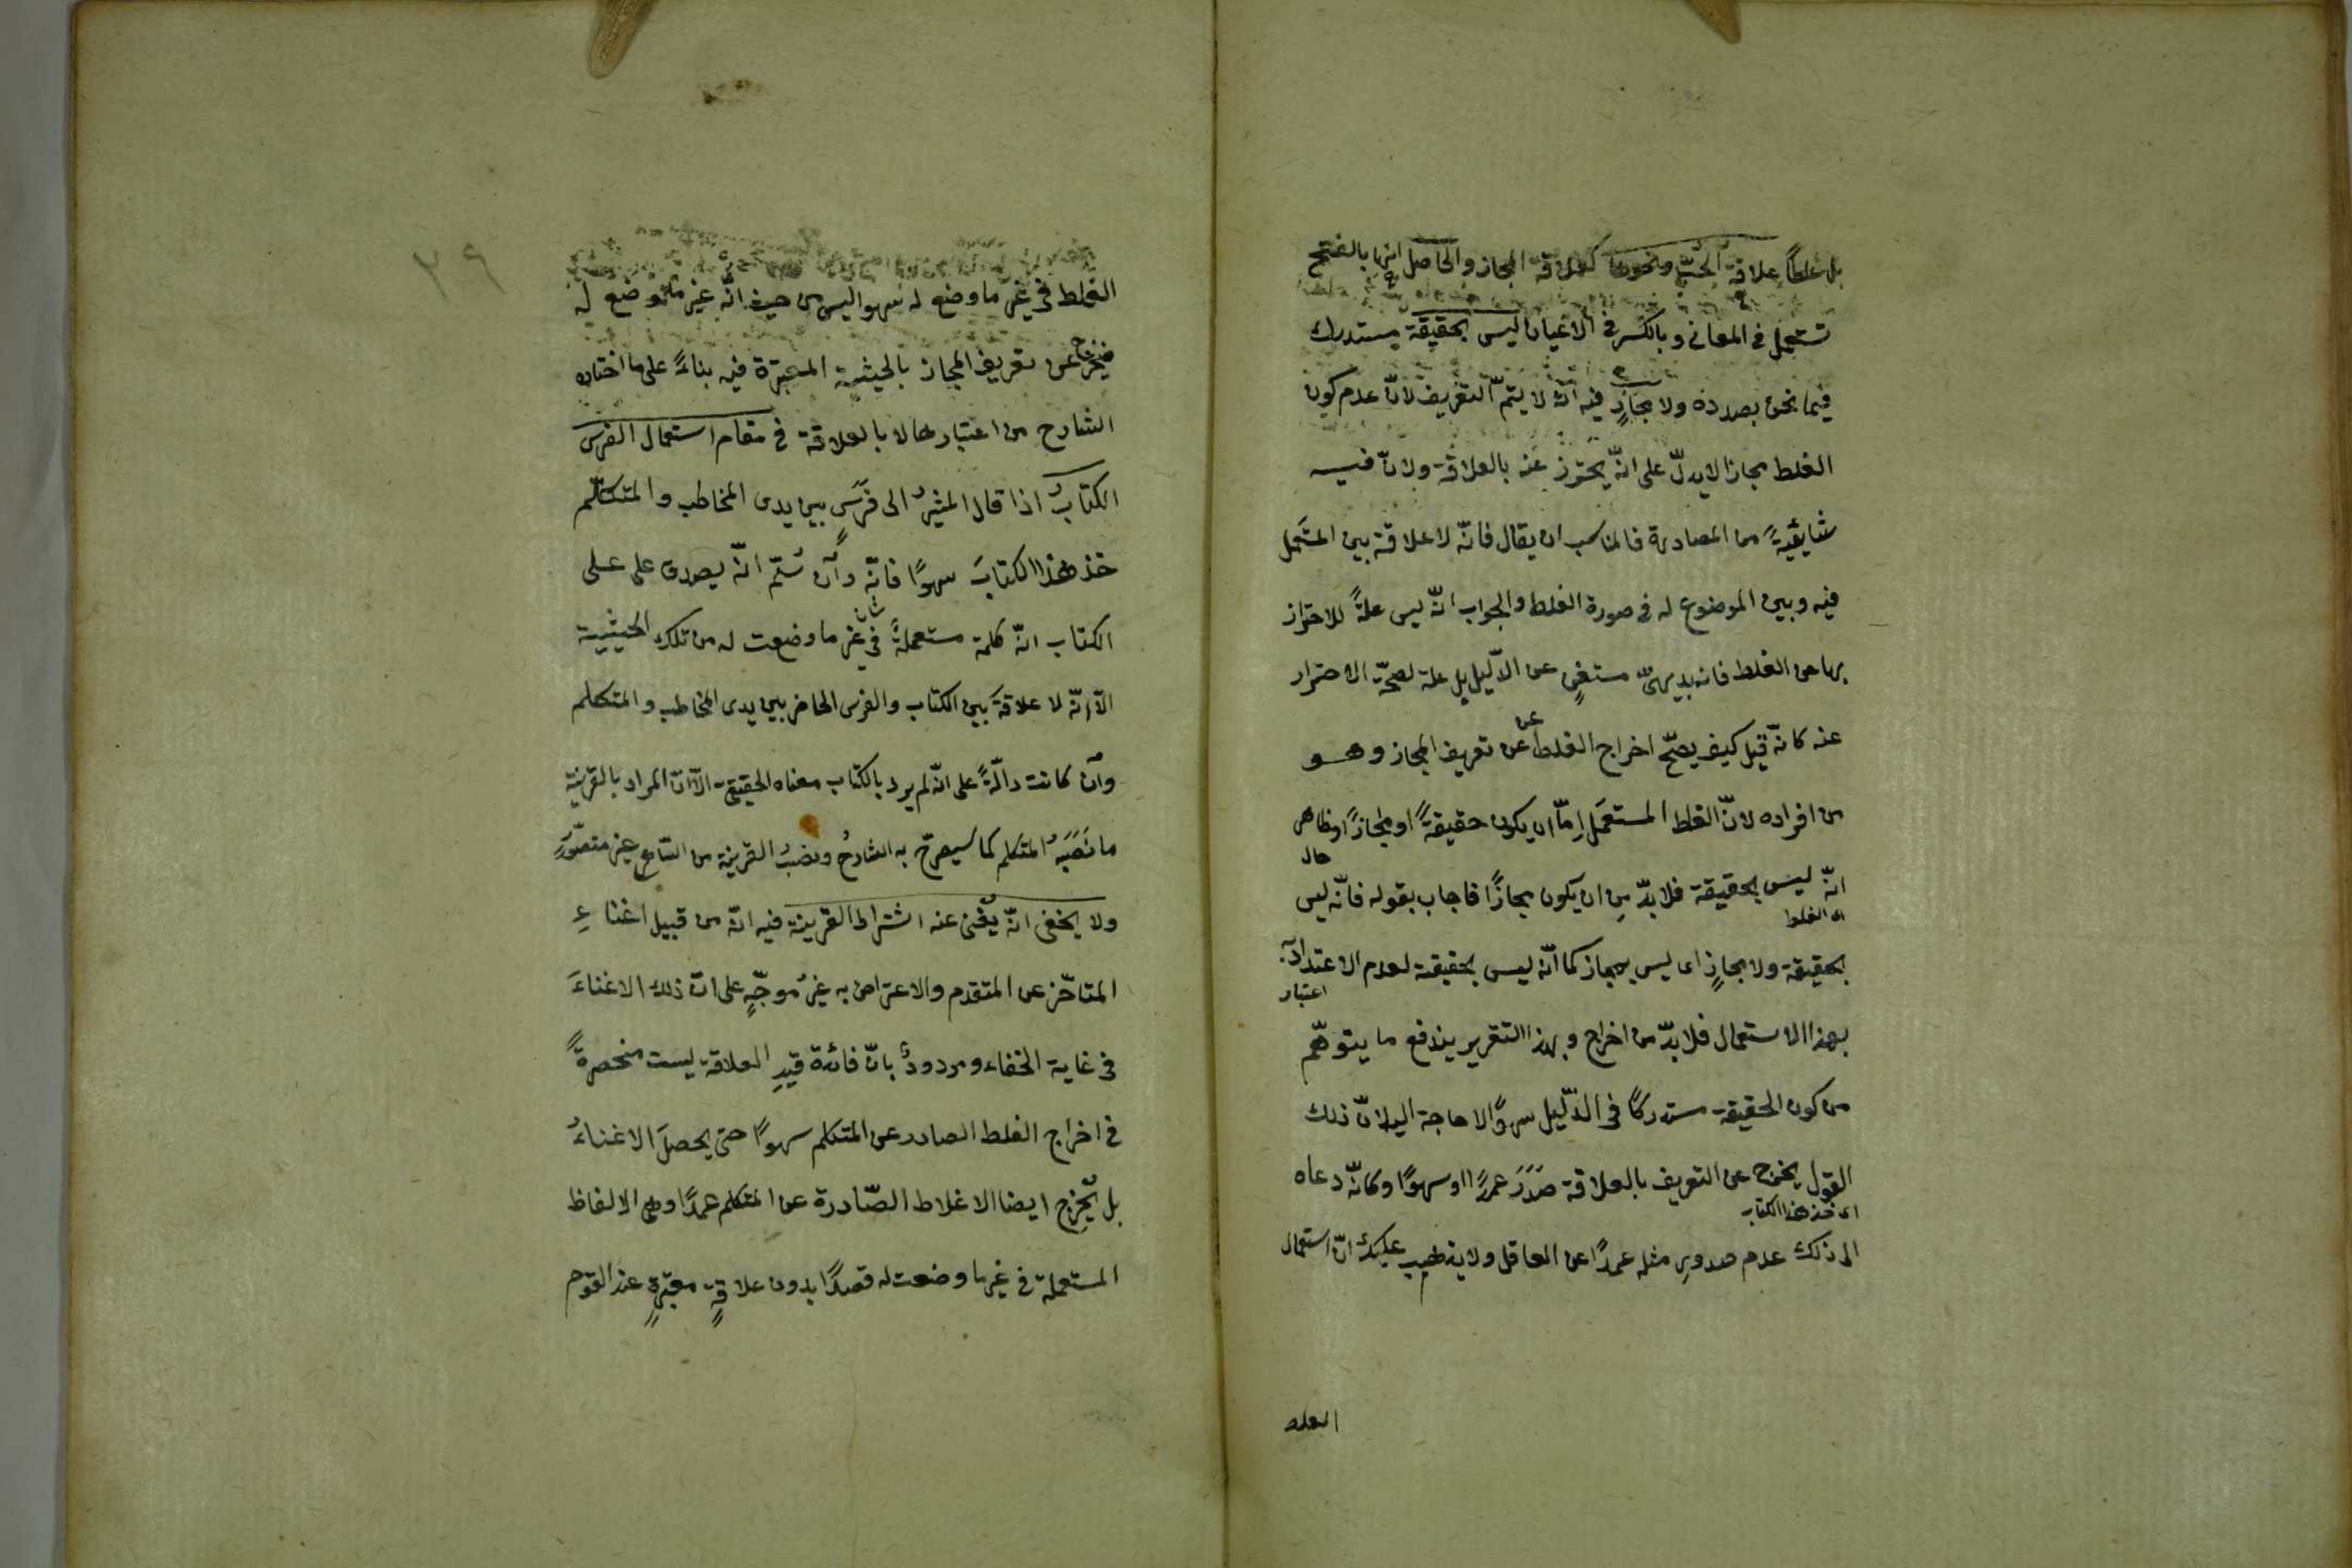 بل غلطاً علاقة الحبّ ونحوها كعلاقة المجاز والحاصل انها بالفتح
تستعمل فى المعانى وبالكسر فى الاعيان ليس بحقيقة مستدرك
فيما نحن بصدده ولا مجازٍ فيه انّه لا يتمّ التقريف لانّ عدم كون
الغلط مجازا لا يدلّ على انّه يحترز عنه بالعلاقة ولانّ فيه
شايبةً من المصادرة فالمناسب ان يقال فانّه لا علاقة بين المستعمل
فيه وبين الموضوع له فى صورة الغلط والجواب انّه ليس علةً للاحتراز
بها عن الغلط فانه بديهىّ مستغنٍ عن الدّليل بل علة لصحّة الاحتراز
عنه كانّه قيل كيف يصحّ اخراج الغلط عن تعريف المجاز وهو
من افراده لانّ الغلط المستعمل اِمّا ان يكون حقيقةً او مجازاً وظاهر
حال
انّه ليس بحقيقة فلا بدّ مِن ان يكون مجازًا فاجاب بقوله فانّه ليس
اى الغلط
بحقيقة ولا مجازٍ اى ليس بمجاز كما انّه ليس بحقيقة لعدم الاعتداد
اعتبار
بهذا الاستعمال فلا بدّ من اخراج وبهذا التقرير يندفع ما يتوهّم
من كون الحقيقة مستدركًا فى الدّليل سهوًا لا حاجة اليه لانّ ذلك
القول يخرج عن التعريف بالعلاقة صَدَرَ عمدًا او سهوًا وكانّه دعاه
اى خذ هذا الكتاب
الى ذلك عدم صدورِ مثله عمدًا عن العاقل ولا يذهب عليك انّ استعمال
الغلط
٣٩
الغلط فى غير ما وضع له سهوا ليس من حيث انّه غير ما وضع له
فيخرج عن تعريف المجاز بالحيثية المعتبرة فيه بناءً على ما اختاره
الشارح من اعتبارها لا بالعلاقة فى مقام استعمال الفرس
الكتابُ اذا قال المشيرُ الى فَرَسٍ بين يدى المخاطب والمتكلّم
خذ هذا الكتابَ سهوًا فانّه وان سُلّم انّه يصدق على على
الكتاب انّه كلمة مستعملةٌ فى غير ما وضعت له من تلك الحيثيية
الّا انّه لا علاقةَ بين الكتاب والفرس الحاضر بين يدى المخاطب والمتكلم
وان كانت دالّةً على انّه لم يرد بالكتاب معناه الحقيقى الّا انّ المراد بالقرينة
ما نَصَبَهُ المتكلم كما سيصرّح به الشارحُ ونصبُ القرينة من السّامع غير متصوّرٍ
ولا يخفى انّه يُغنى عنه اشتراط القرينة فيه انّه من قبيل اغناءِ
المتأخّر عن المتقدم والاعتراض به غيرُ موجّهٍ على انّ ذلك الاغناءَ
فى غاية الخفاء ومردودٌ بانّ فائدة قيدِ العلاقة ليست منحصرةً
فى اخراج الغلط الصادر عن المتكلم سهوًا حتى يحصلَ الاغناءُ
بل يُخرِج ايضا الاغلاط الصّادرة عن المتكلم عمدًا وهى الالفاظ
المستعملة فى غير ما وضعت له قصدًا بدون علاقةٍ معتبرةٍ عند القوم